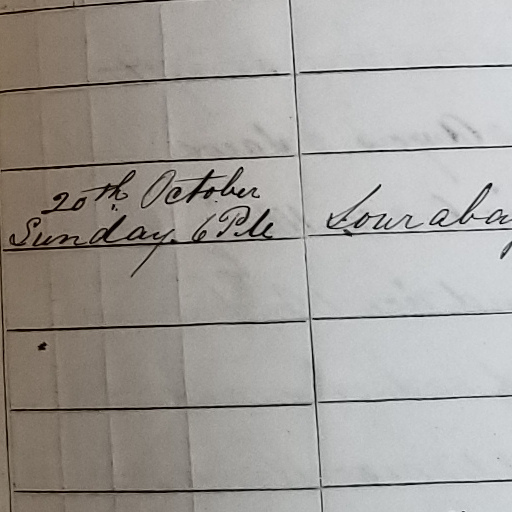 20th October
Sunday. 6 P.M. Souraba